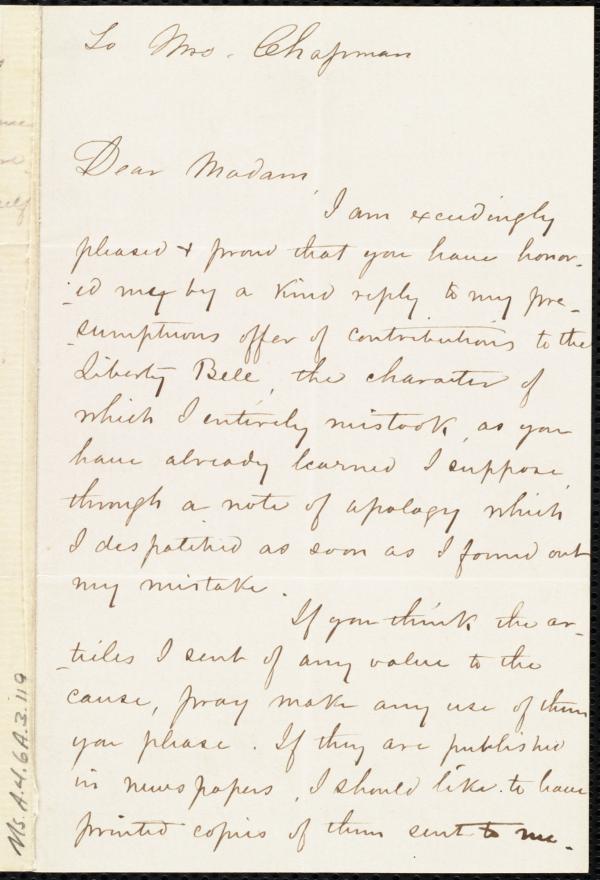 To Mrs. Chapman
Dear Madam,
I am exceedingly
pleased & proud that you have honor-
-ed me by a kind reply to my pre-
-sumptuous offer of contributions to the
Liberty Bell, the character of
which I entirely mistook, as you
have already learned I suppose,
through a note of apology which
I despatched as soon as I found out
my mistake.
If you think the ar-
-ticles I sent of any value to the
cause, pray make any use of them
you please. If they are published
in newspapers, I should like to have
printed copies of them sent to me.
Ms.A.4.6A.3.119
self